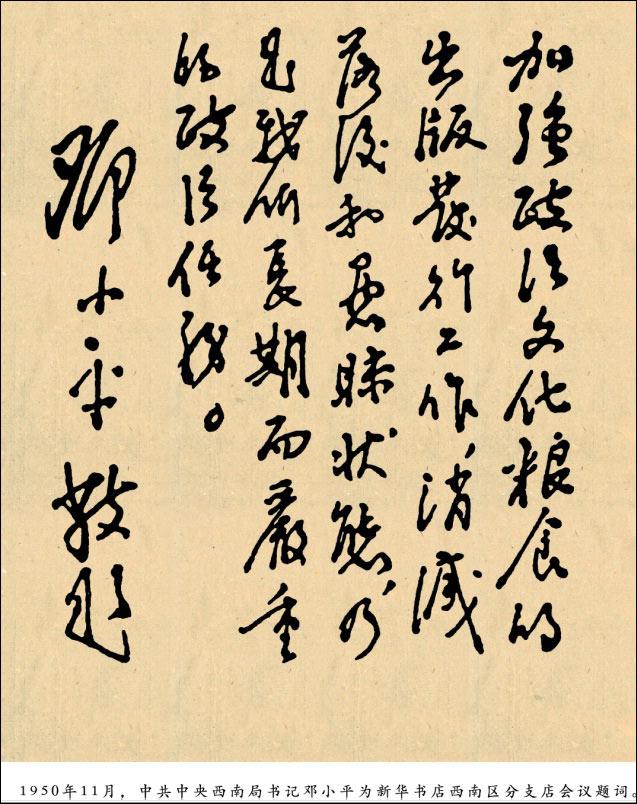 加強政治文化粮食的
出版發行工作，消滅
落後和愚昧状態，乃
是我們長期而嚴重
的政治任務。
鄧小平敬題
1950年11月，中共中央西南局书记邓小平为新华书店西南区分支店会议题词。